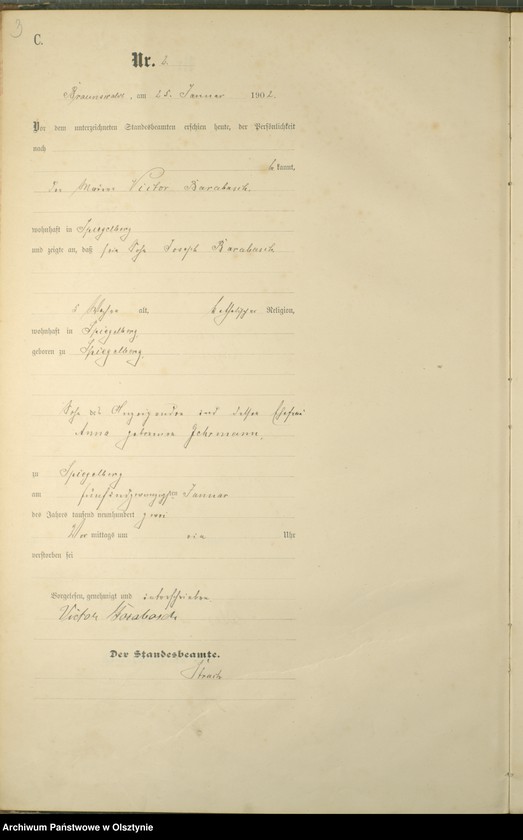 3
C.
Nr. 2
Braunswalde, am 25. Januar 1902.
Vor dem unterzeichneten Standesbeamten erschien heute, der Persönlichkeit
nach
bekannt,
der Maurer Victor Barabasch
wohnhaft in Spiegelberg
und zeigte an, daß sein Sohn Joseph Barabasch
5 alt, katholischer Religion,
wohnhaft in Spiegelberg
geboren zu Spiegelberg,
Sohn des Anzeigenden und dessen Ehefrau
Anna geborenen
zu Spiegelberg
am fünfundzwanzigsten Januar
des Jahres tausend neunhundert zwei
Vor mittags um ein Uhr
verstorben sei
Vorgelesen, genehmigt und unterschrieben
Victor Barabasch
Der Standesbeamte.
Archiwum Państwowe w Olsztynie